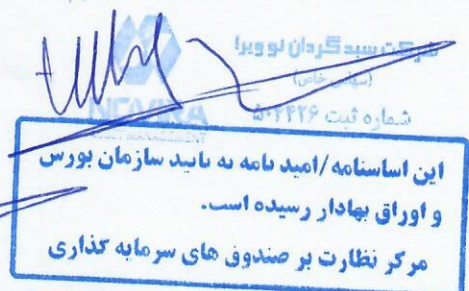 شرکت سبدگردان نوویرا
(سهامی خاص)
شماره ثبت ۵۰۲۴۲۶
این اساسنامه/امید نامه به تایید سازمان بورس
و اوراق بهادار رسیده است.
مرکز نظارت بر صندوق های سرمایه گذاری